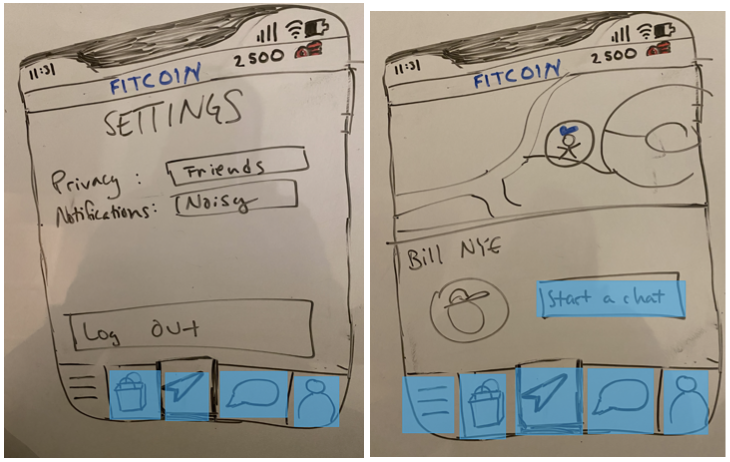 11:31
2500
FITCOIN
SETTINGS
Privacy : Friends
Notifications: Noisy
Log out
11:31
2500
FITCOIN
Bill NYE
Start a chat